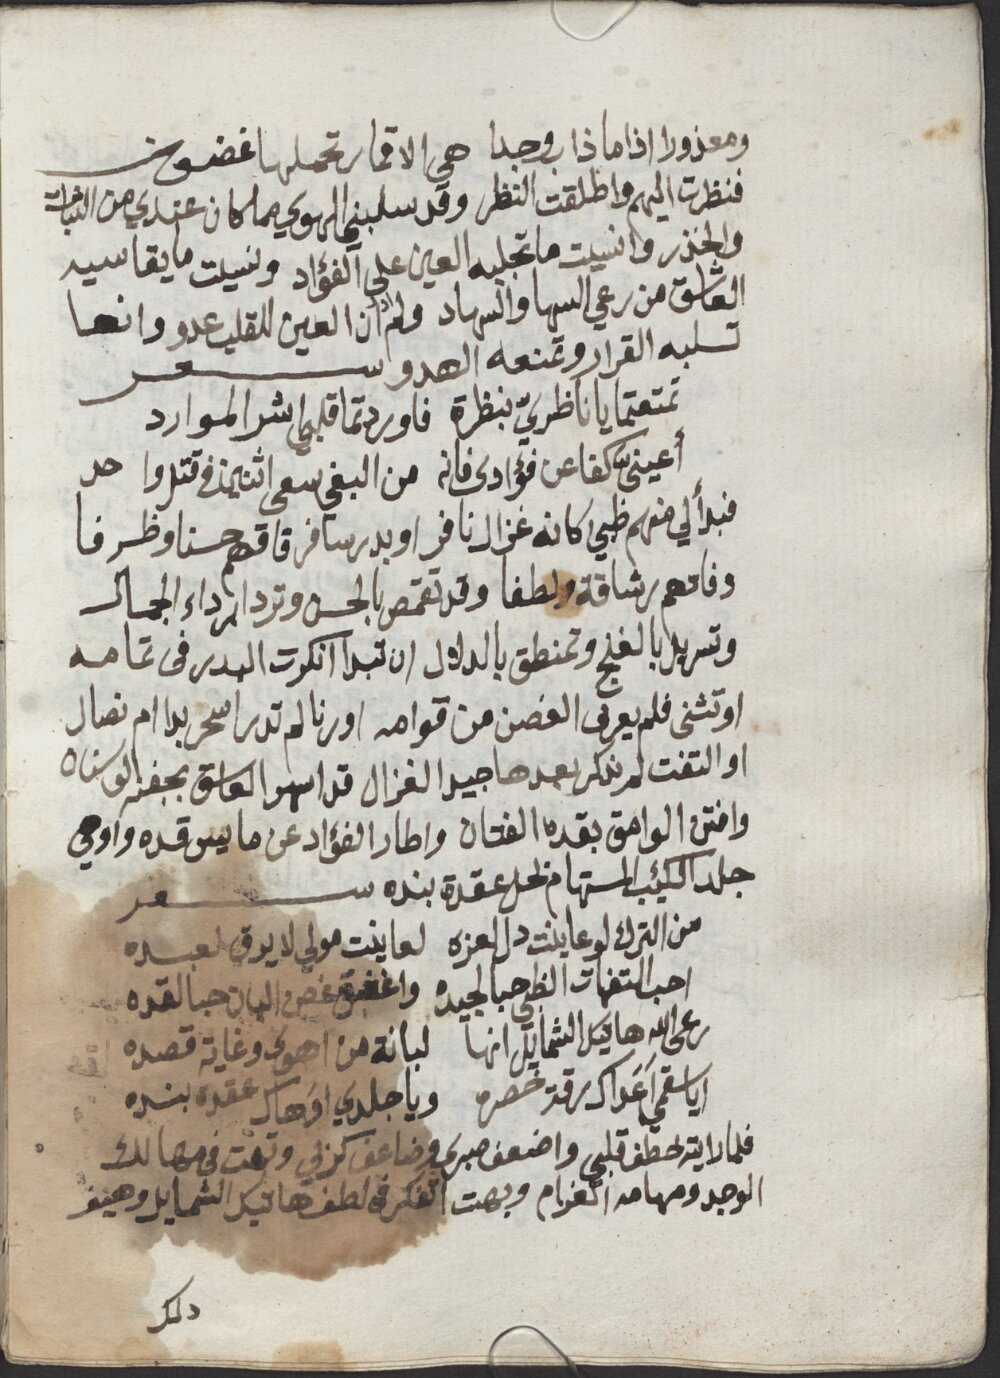 ومعذورا اذا ما ذاب وجدا هي الاقمار تحملها غضون
فنظرت اليهم واطلقت النظر وقد سلبني الهوي مما كان عندي من الثبات
والحذر وانسيت ما تجلبه العين علي الفؤاد ونسيت ما يقاسيه
العاشق من رعي السها والسهاد ولم ادر ان العين للقلب عدو وانها
تسلبه القرار وتمنعه الهدو شعر
تمتعتما يا ناظريّ بنظرة فاوردتما قلبي اشر الموارد
أعينيّ كفا عن فؤادى فانه من البغي سعى اثنين في قتل واحد
فبدأ لي منهم ظبي كانه غزال نافر او بدر سافر فاقهم حسنا وظرفا
وفاتهم رشاقة ولطفا وقد تقمص بالحسن وتردا برداء الجمال
وتسربل بالغنج وتمنطق بالدلال ان تبدا انكرت البدر فى تمامه
او تثنى فلم يعرف الغصن من قوامه او رنا لم تدر اسحر بدا ام نصال
او التفت لم تذكر بعدها جيد الغزال قد اسهر العاشق بجفنه الوسنان
وافتن الوامق بقده الفتان واطار الفؤاد عن مايس قده واوهي
جلد الكئيب المستهام نحل عقدة بنده شعر
من الترك لو عاينت دل لعزه لعاينت مولي لا يرق لعبده
احب التفات الظبي حبا لجيده واعشق غصن البان حبا لقده
رعى الله هاتيك الشمايل انها لبانة من اهوى وغاية قصده
ايا سقمي اعداك رقة خصره ويا جلدي اوهاك عقدة بنده
فلما رايته خطف قلبي واضعف صبري وضاعف كربي وتهت في مهالك
الوجد ومهامه الغرام وبهت اتفكر في لطف هاتيك الشمايل وهيف